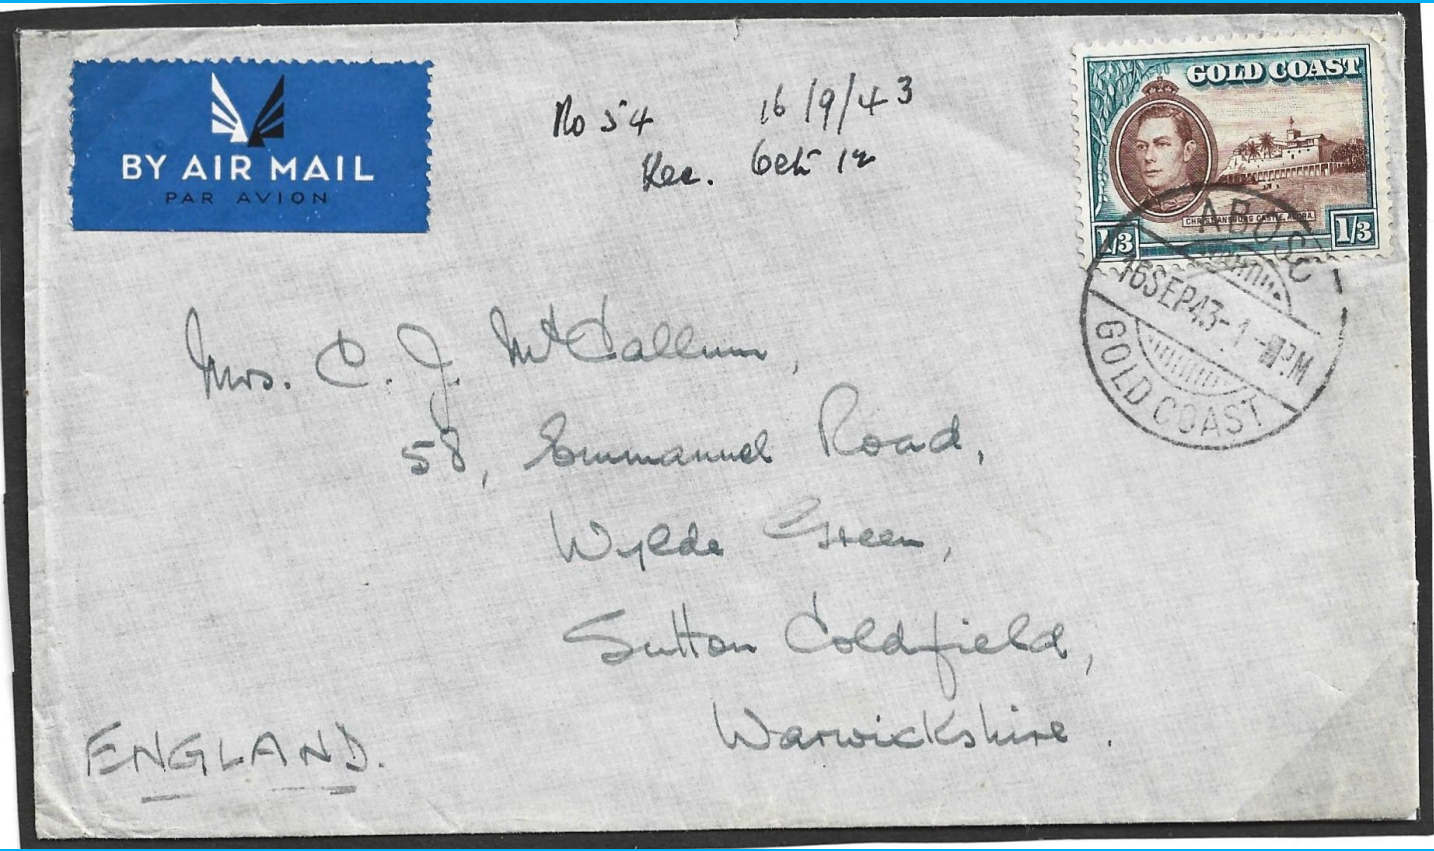 BY AIR MAIL
PAR AVION
No 54 16/9/43
Rec. Oct 12
GOLD COAST
CHRISTIANSBORG CASTLE, ACCRA.
1/3 1/3
ABOSO
16SEP43-1-PM
GOLD COAST
Mrs. C. J. McCallum,
58, Emmanuel Road,
Wylde Green,
Sutton Coldfield,
Warwickshire.
ENGLAND.